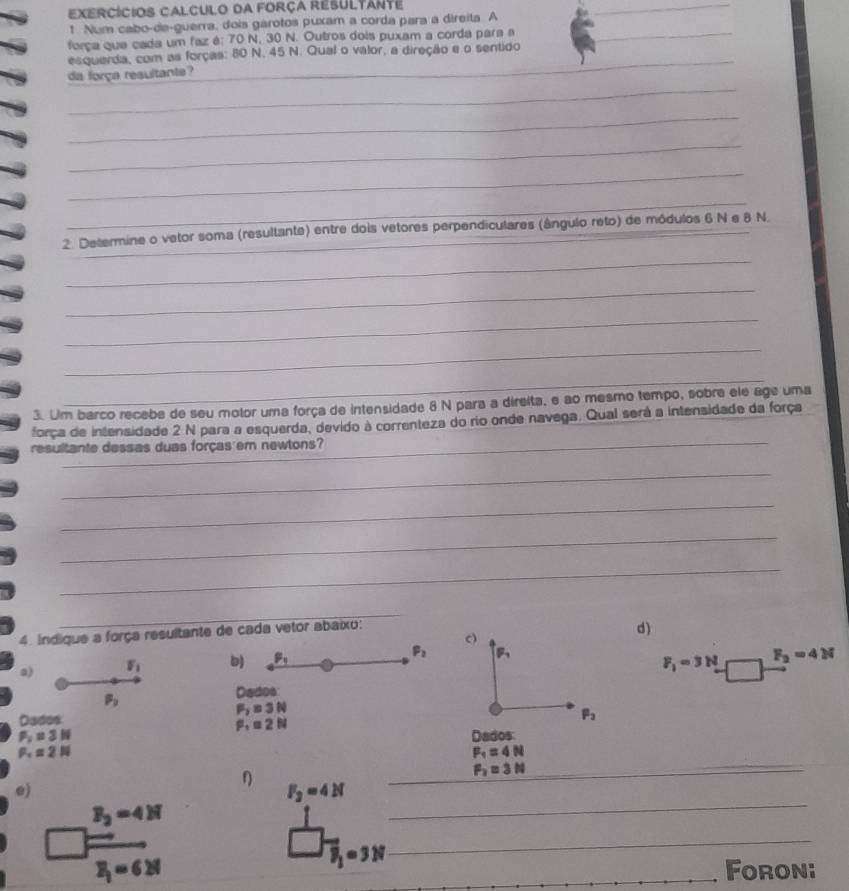 EXERCÍCIOS CALCULO DA FORÇA RESULTANTE
1. Num cabo-de-guerra, dois garotos puxam a corda para a direita. A
força que cada um faz é: 70 N, 30 N. Outros dois puxam a corda para a
esquerda, com as forças: 80 N, 45 N. Qual o valor, a direção e o sentido
da força resultante?
2. Determine o vetor soma (resultante) entre dois vetores perpendiculares (ângulo reto) de módulos 6 N e 8 N.
3. Um barco recebe de seu motor uma força de intensidade 8 N para a direita, e ao mesmo tempo, sobre ele age uma
força de intensidade 2 N para a esquerda, devido à correnteza do rio onde navega. Qual será a intensidade da força
resultante dessas duas forças em newtons?
4. Indique a força resultante de cada vetor abaixo:
a)
F₁
F₂
Dados:
F₂ = 3 N
F₁ = 2 N
b)
F₁
F₂
Dados:
F₂ = 3 N
F₁ = 2 N
c)
F₁
F₂
Dados:
F₁ = 4 N
F₂ = 3 N
d)
F₁ = 3 N
F₂ = 4 N
e)
F₂ = 4 N
F₁ = 6 N
f)
F₂ = 4 N
F₁ = 3 N
FORONI